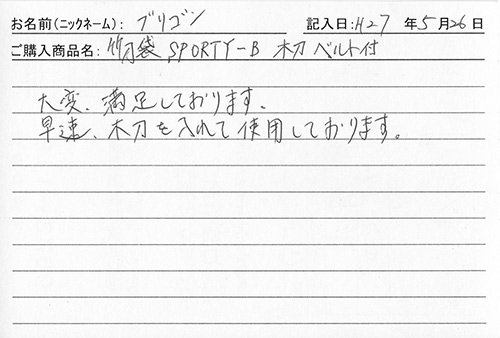 お名前(ニックネーム): ブリゴン 記入日: H27 年 5 月 26 日
ご購入商品名: 竹刀袋 SPORTY-B 木刀ベルト付
大変、満足しております、
早速、木刀を入れて使用しております。